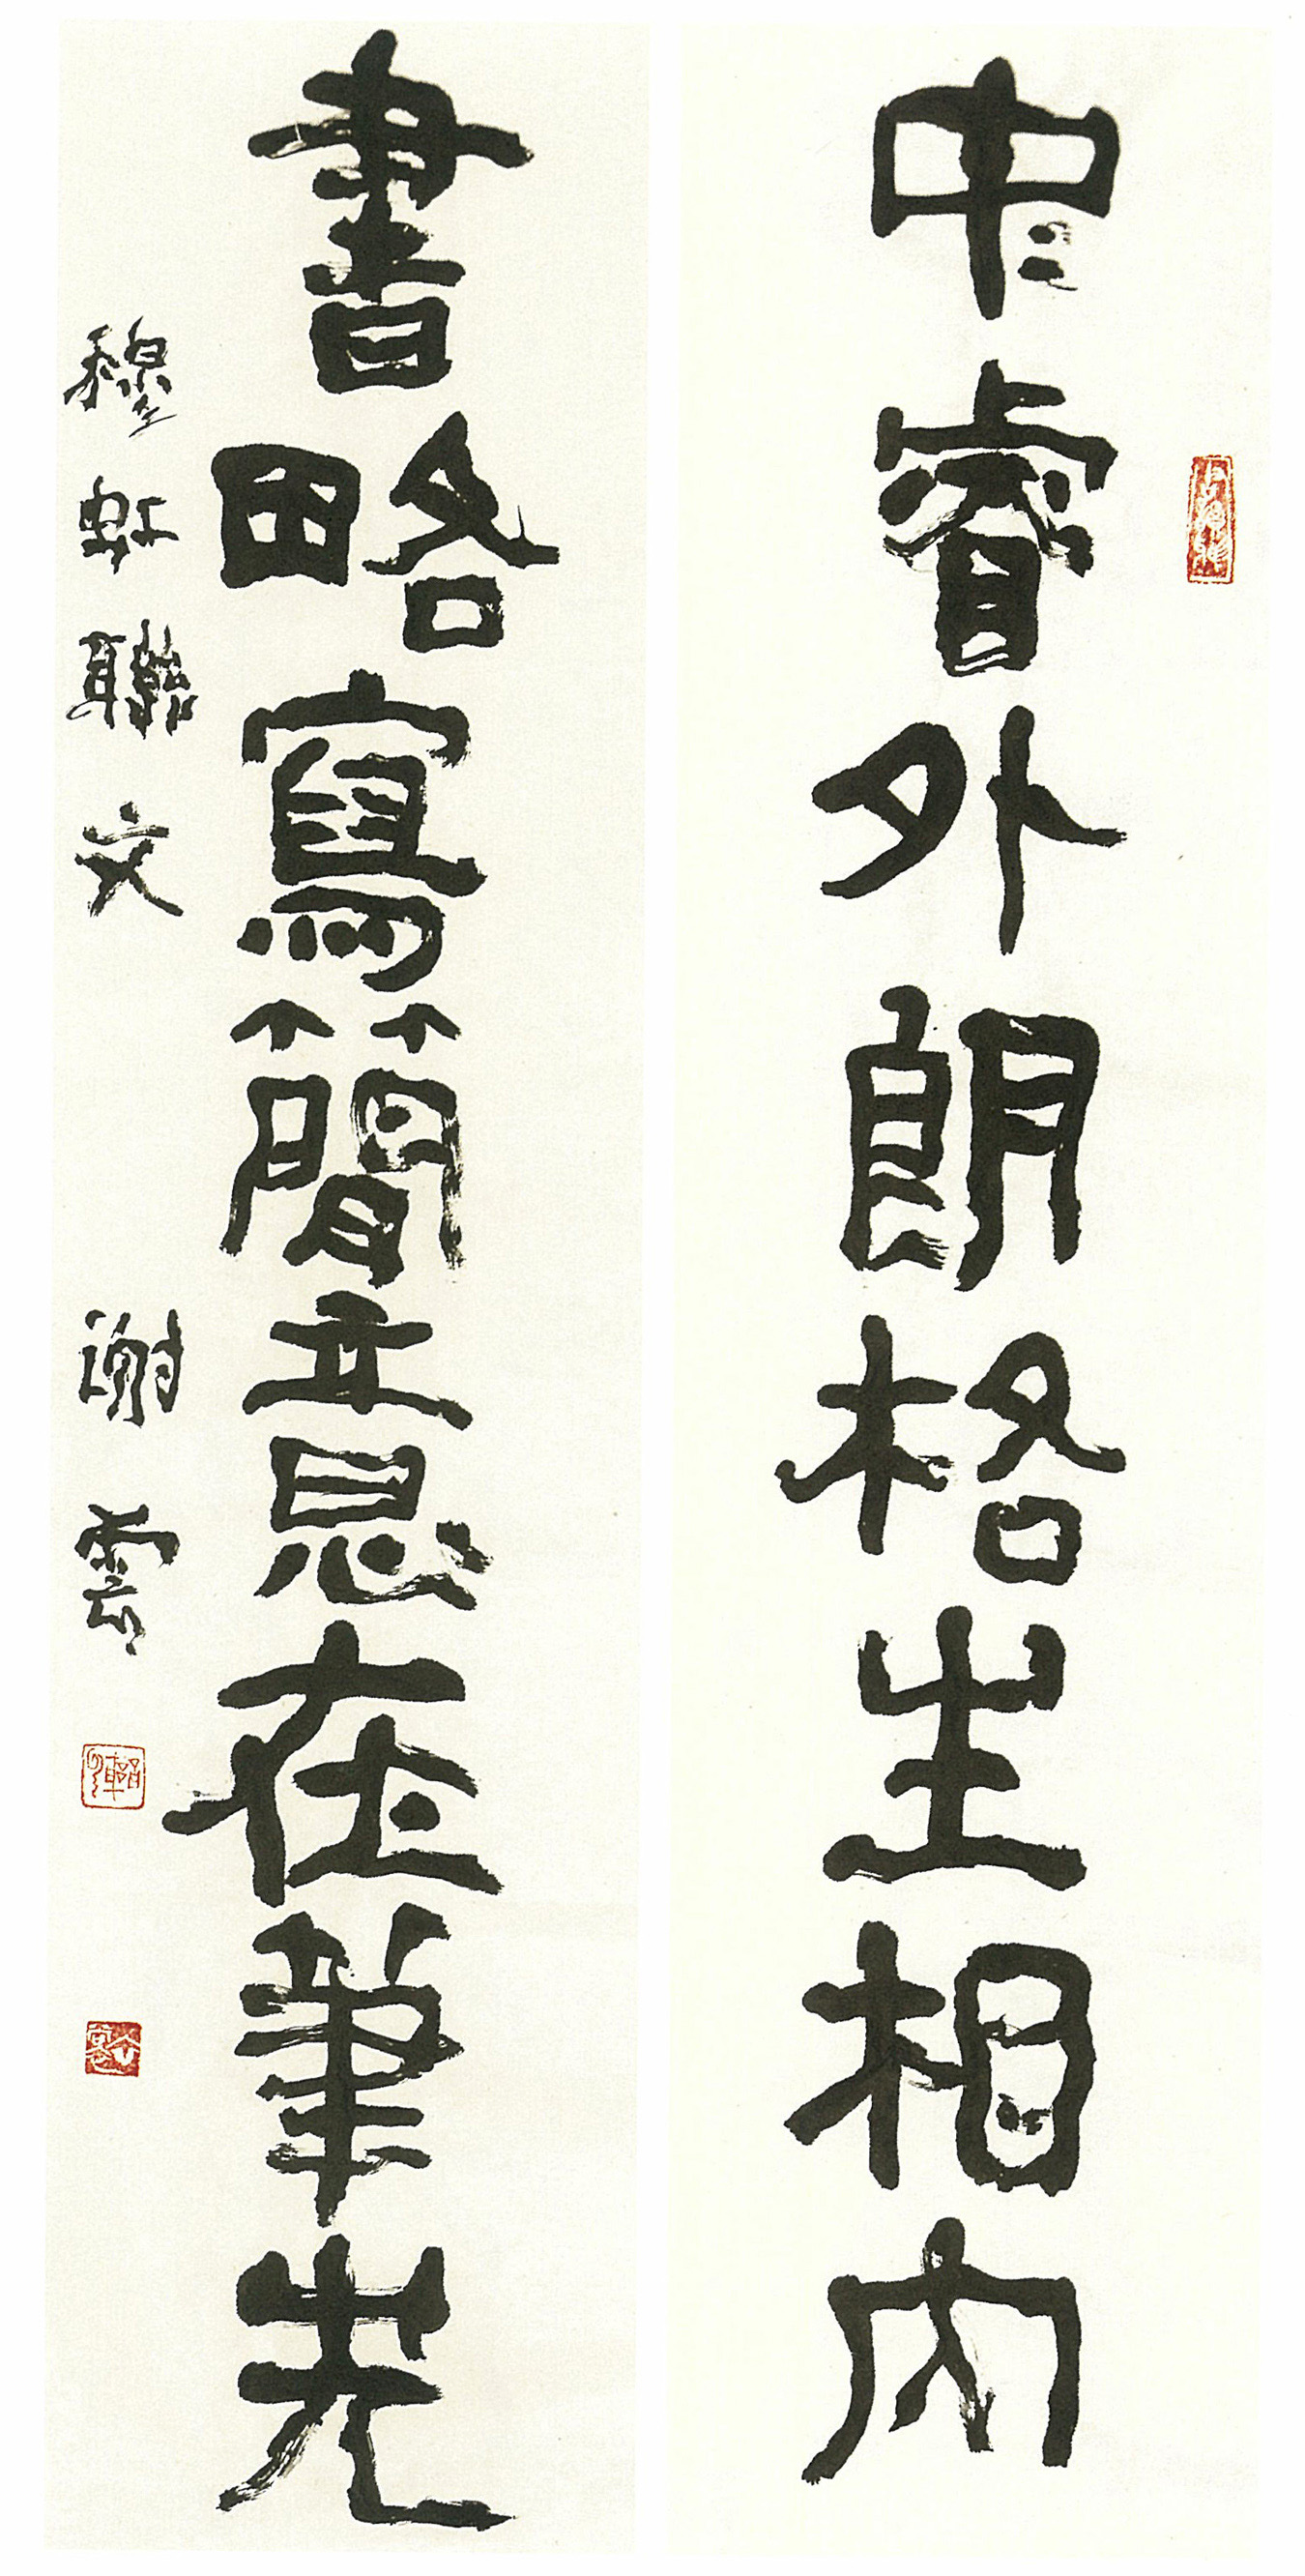 中睿外朗格生相內
書略寫簡意在筆先
穆虹聯文 謝雲